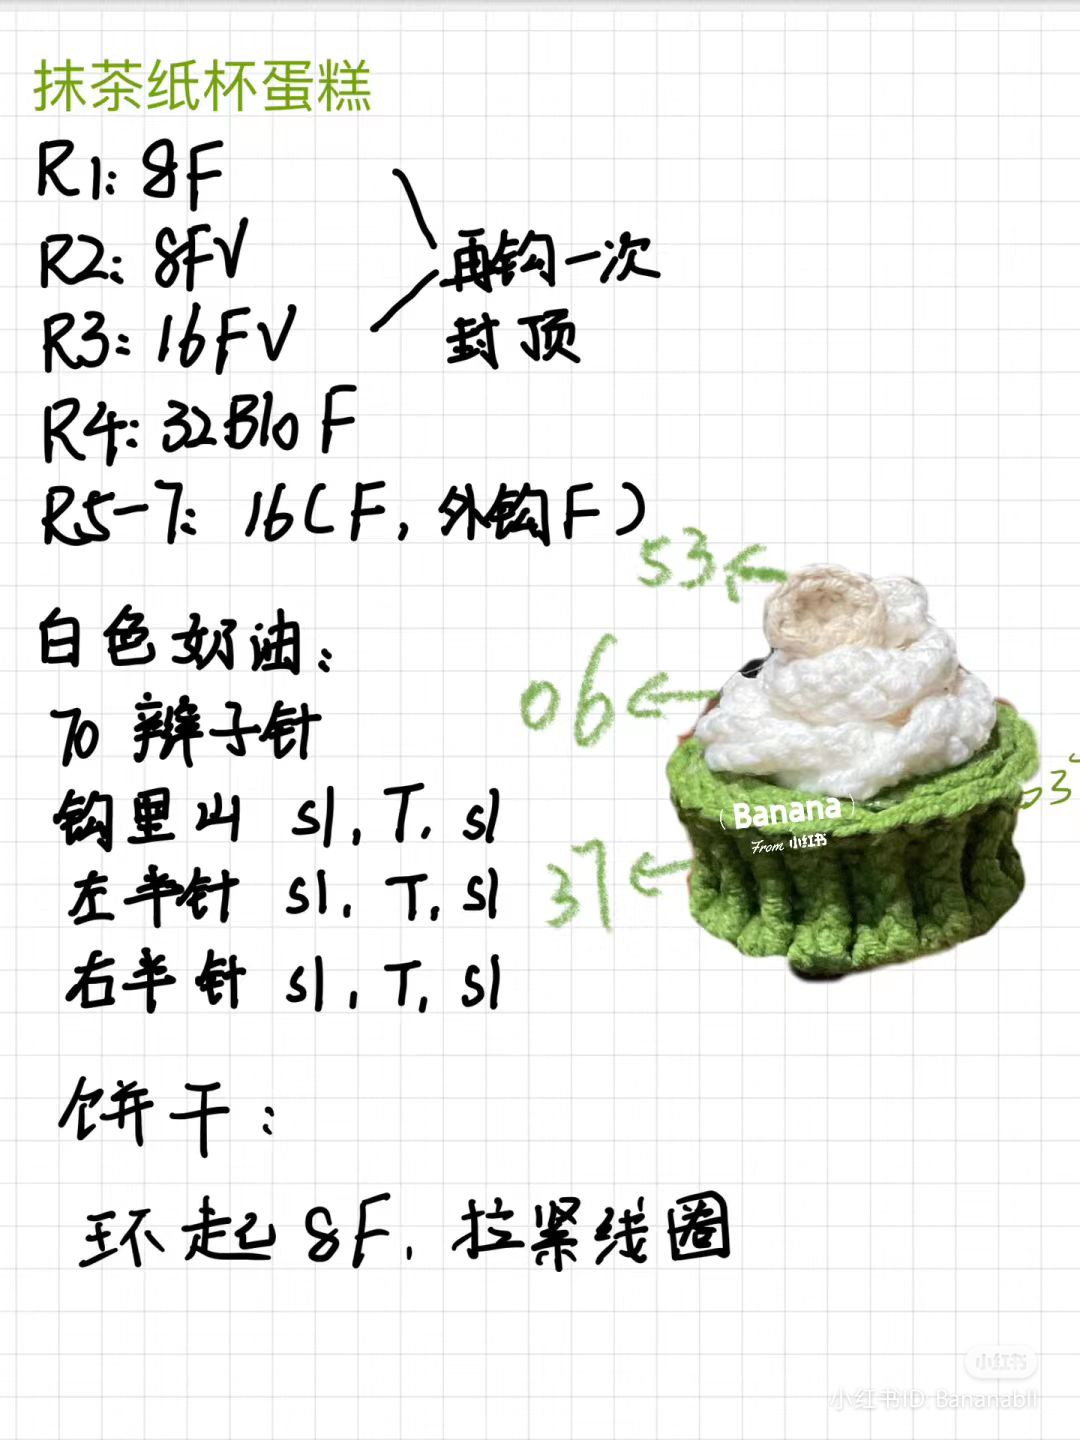 抹茶纸杯蛋糕
R1: 8F
R2: 8FV
R3: 16FV
再钩一次
封顶
R4: 32Blo F
R5-7: 16(F, 外钩F)
53
白色奶油:
06
70 辫子针
钩里山 sl, T, sl
03
(Banana)
From 小红书
37
左半针 sl, T, sl
右半针 sl, T, sl
饼干:
环起 8F, 拉紧线圈
小红书
小红书ID: Bananabll